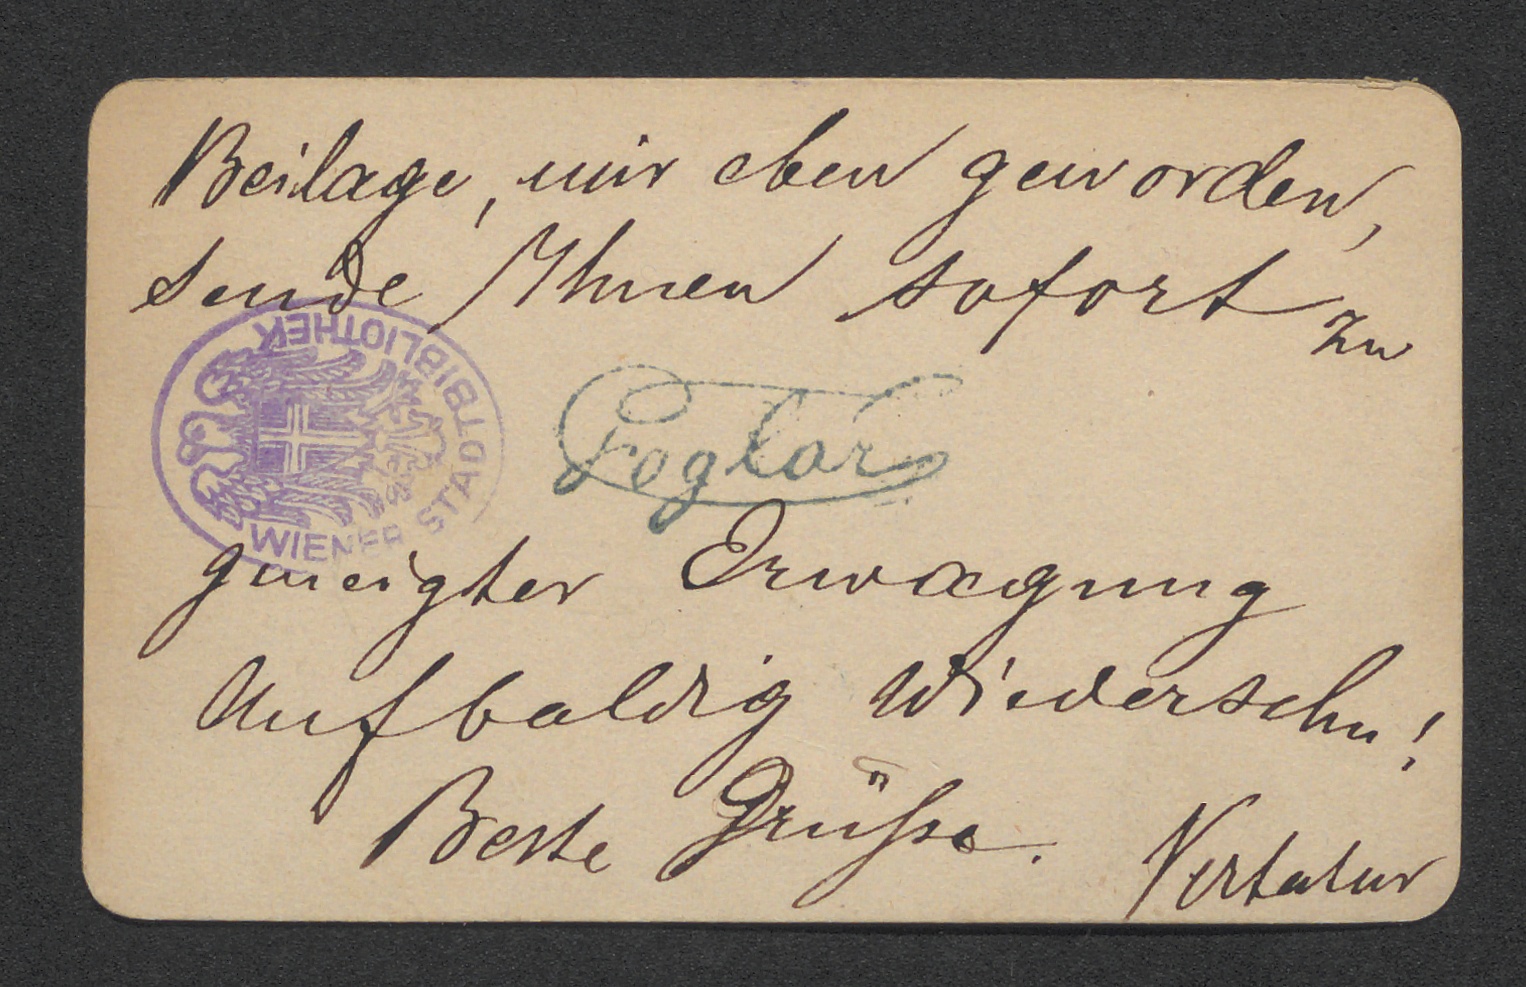 Beilage, mir eben geworden,
sende Ihnen sofort zu
WIENER STADTBIBLIOTHEK
Foglar
geneigter Erwägung
Auf baldig Wiedersehn!
Beste Grüße. Vertatur